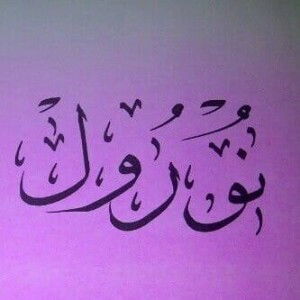 نُوْرُوْلْ